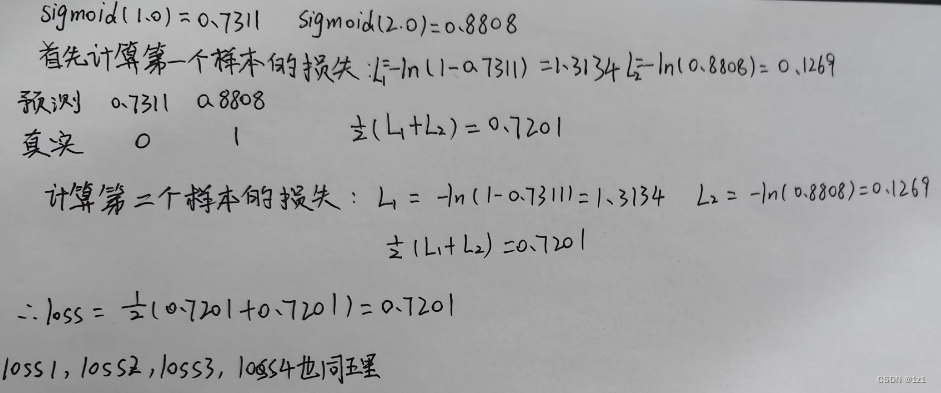 sigmoid(1.0)=0.7311 sigmoid(2.0)=0.8808
首先计算第一个样本的损失:L₁=-ln(1-0.7311)=1.3134 L₂=-ln(0.8808)=0.1269
预测 0.7311 0.8808
真实 0 1 ½(L₁+L₂)=0.7201
计算第二个样本的损失: L₁ = -ln(1-0.7311)=1.3134 L₂ = -ln(0.8808)=0.1269
½(L₁+L₂)=0.7201
∴loss= ½(0.7201+0.7201)=0.7201
loss1, loss2, loss3, loss4也同理
CSDN @izi